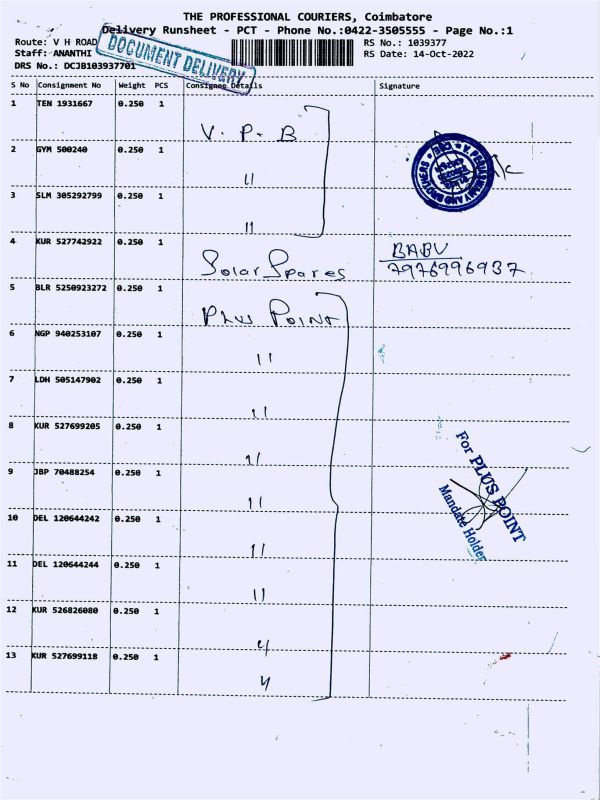 THE PROFESSIONAL COURIERS, Coimbatore
Delivery Runsheet - PCT - Phone No.:0422-3505555 - Page No.:1
Route: V H ROAD
RS No.: 1039377
Staff: ANANTHI
RS Date: 14-Oct-2022
DRS No.: DCJB103937701
DOCUMENT DELIVERY
S No Consignment No Weight PCS Consignee Details Signature
1 TEN 1931667 0.250 1 V. P. B
2 GYM 500240 0.250 1 11
3 SLM 305292799 0.250 1 11
4 KUR 527742922 0.250 1 Solar Spares BABU
7976996937
5 BLR 5250923272 0.250 1 PLUS POINT
6 NGP 940253107 0.250 1 11
7 LDH 505147902 0.250 1 11
8 KUR 527699205 0.250 1 11
9 JBP 70488254 0.250 1 11
10 DEL 120644242 0.250 1 11
11 DEL 120644244 0.250 1 11
12 KUR 526826080 0.250 1 4
13 KUR 527699118 0.250 1 4
For PLUS POINT
Mandate Holder